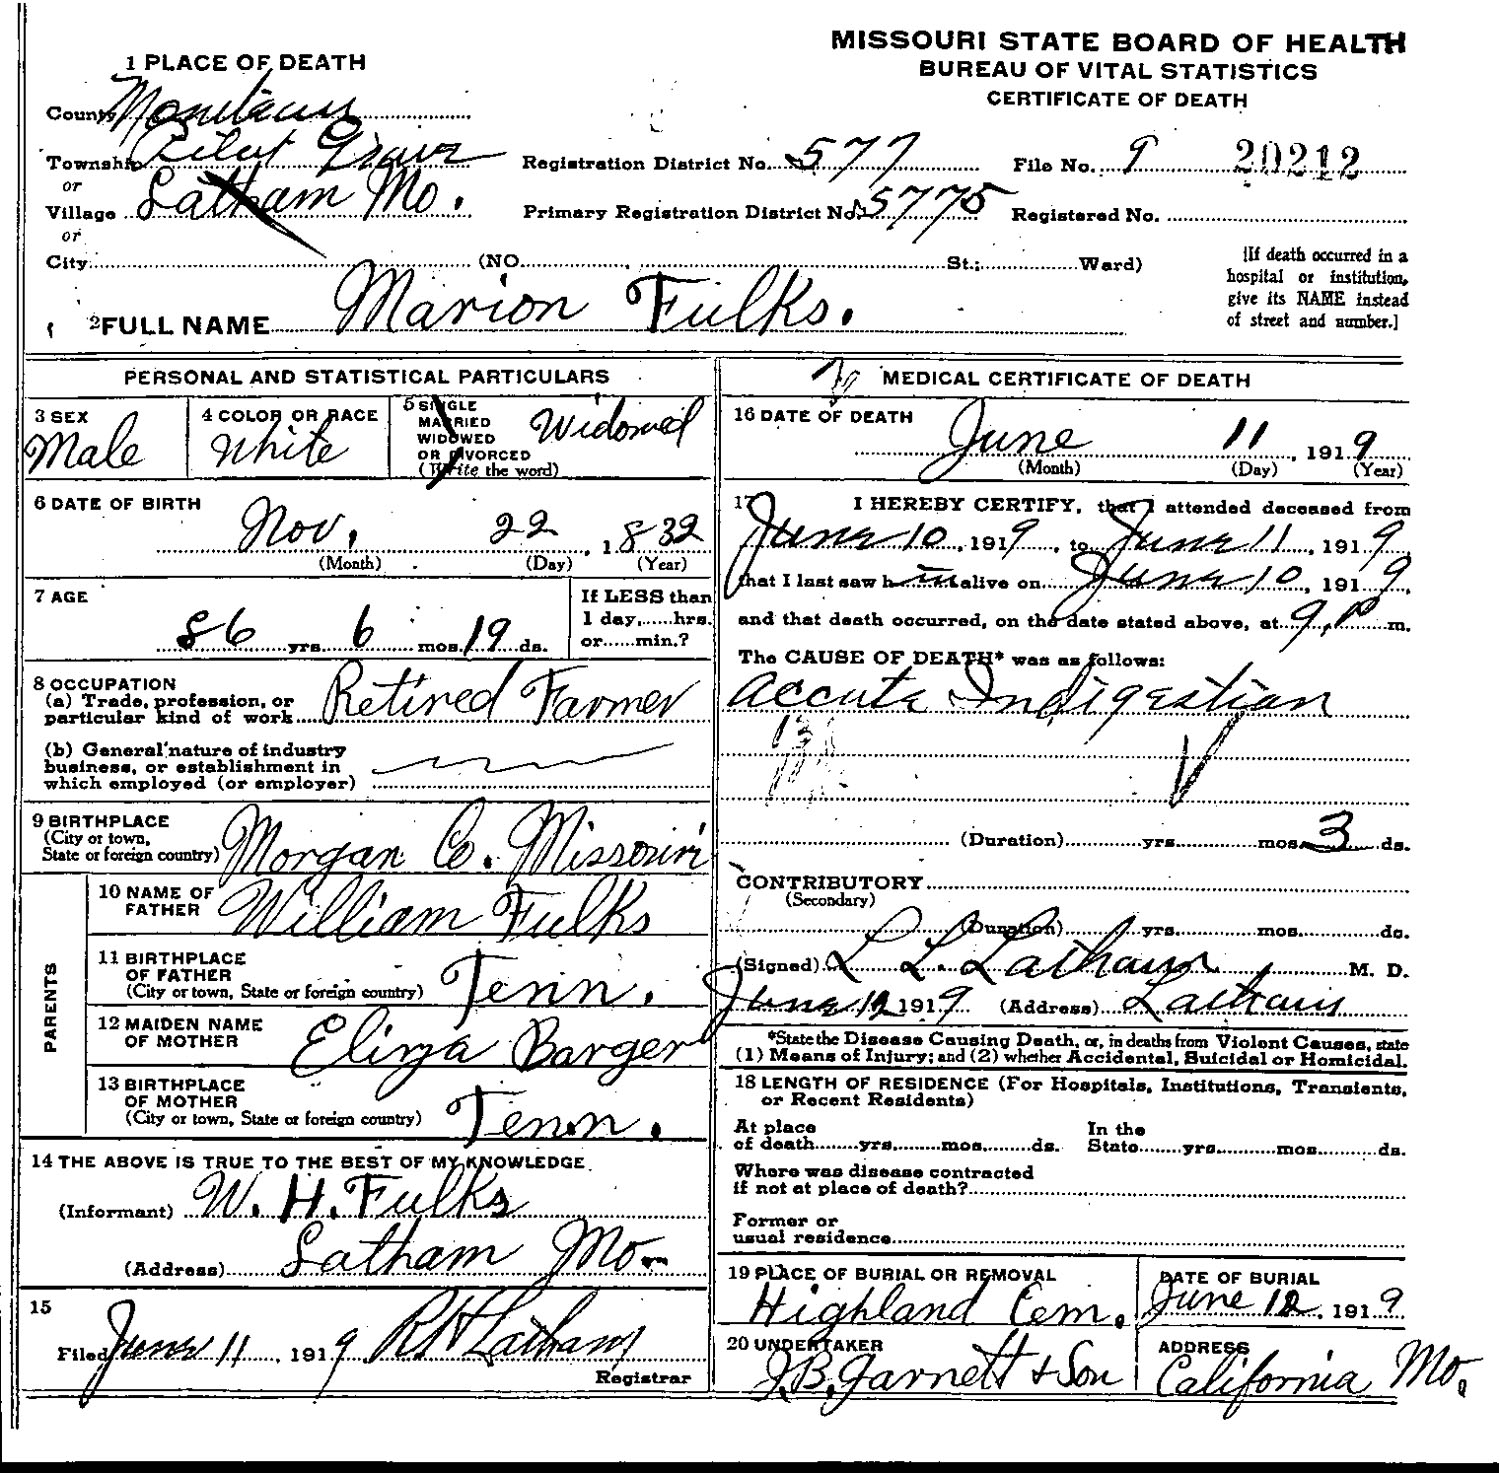 MISSOURI STATE BOARD OF HEALTH
BUREAU OF VITAL STATISTICS
CERTIFICATE OF DEATH
1 PLACE OF DEATH
County Moniteau
Township Pilot Grove Registration District No. 577 File No. 9 20212
or
Village Latham Mo. Primary Registration District No. 5775 Registered No.
or
City (NO. St.; Ward)
[If death occurred in a
hospital or institution,
give its NAME instead
of street and number.]
2 FULL NAME Marion Fulks.
PERSONAL AND STATISTICAL PARTICULARS
3 SEX
Male
4 COLOR OR RACE
White
5 SINGLE
MARRIED
WIDOWED
OR DIVORCED
(Write the word)
Widowed
6 DATE OF BIRTH
Nov. 22, 1832
(Month) (Day) (Year)
7 AGE
86 yrs. 6 mos. 19 ds.
If LESS than
1 day,......hrs.
or......min.?
8 OCCUPATION
(a) Trade, profession, or
particular kind of work Retired Farmer
(b) General nature of industry
business, or establishment in
which employed (or employer)
9 BIRTHPLACE
(City or town,
State or foreign country) Morgan Co. Missouri
PARENTS
10 NAME OF
FATHER William Fulks
11 BIRTHPLACE
OF FATHER
(City or town, State or foreign country) Tenn.
12 MAIDEN NAME
OF MOTHER Eliza Barger
13 BIRTHPLACE
OF MOTHER
(City or town, State or foreign country) Tenn.
14 THE ABOVE IS TRUE TO THE BEST OF MY KNOWLEDGE
(Informant) W. H. Fulks
(Address) Latham Mo.
15
Filed June 11, 1919 R H Latham
Registrar
MEDICAL CERTIFICATE OF DEATH
16 DATE OF DEATH
June 11, 1919
(Month) (Day) (Year)
17 I HEREBY CERTIFY, that I attended deceased from
June 10, 1919, to June 11, 1919,
that I last saw him alive on June 10, 1919,
and that death occurred, on the date stated above, at 9, P m.
The CAUSE OF DEATH* was as follows:
Accute Indigestion
(Duration) yrs. mos. 3 ds.
CONTRIBUTORY
(Secondary)
(Duration) yrs. mos. ds.
(Signed) L L. Latham M. D.
June 12 1919 (Address) Latham
*State the Disease Causing Death, or, in deaths from Violent Causes, state
(1) Means of Injury; and (2) whether Accidental, Suicidal or Homicidal.
18 LENGTH OF RESIDENCE (For Hospitals, Institutions, Transients,
or Recent Residents)
At place In the
of death yrs. mos. ds. State yrs. mos. ds.
Where was disease contracted
if not at place of death?
Former or
usual residence
19 PLACE OF BURIAL OR REMOVAL
Highland Cem.
DATE OF BURIAL
June 12, 1919
20 UNDERTAKER
J. B. Garnett & Son
ADDRESS
California Mo.